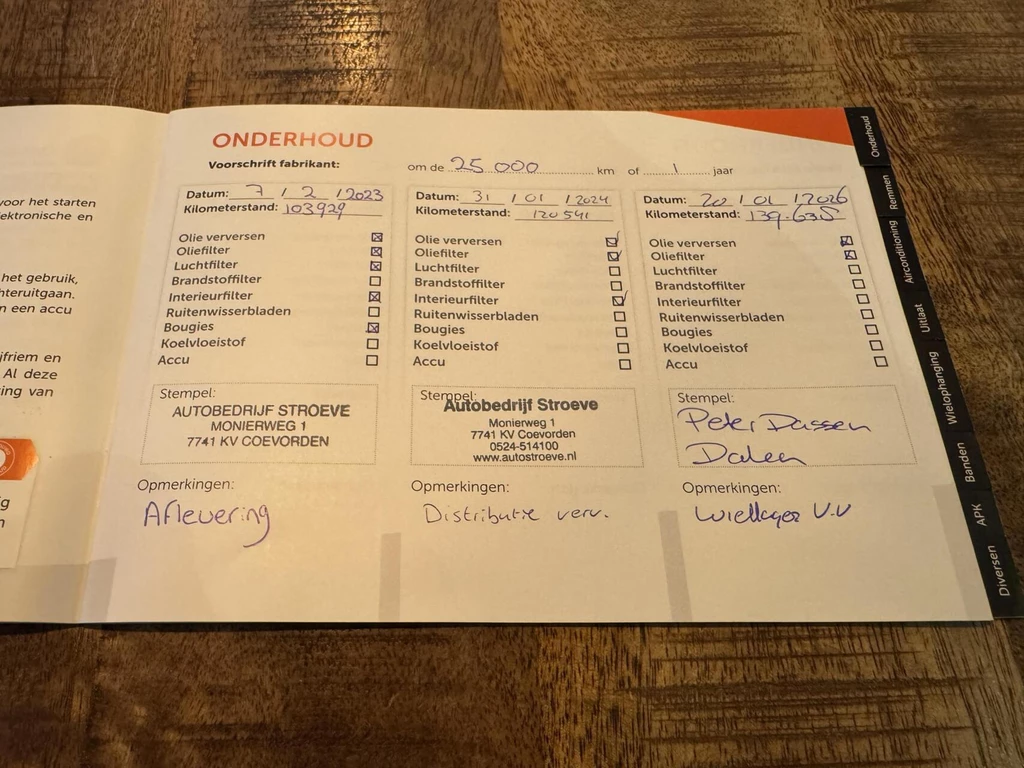 voor het starten
ektronische en
het gebruik,
hteruitgaan.
n een accu
jfriem en
Al deze
ing van
ONDERHOUD
Voorschrift fabrikant: om de 25.000 km of 1 jaar
Datum: 7 / 2 / 2023
Kilometerstand: 103929
Olie verversen ☒
Oliefilter ☒
Luchtfilter ☒
Brandstoffilter ☐
Interieurfilter ☒
Ruitenwisserbladen ☐
Bougies ☒
Koelvloeistof ☐
Accu ☐
Stempel:
AUTOBEDRIJF STROEVE
MONIERWEG 1
7741 KV COEVORDEN
Opmerkingen:
Aflevering
Datum: 31 / 01 / 2024
Kilometerstand: 120541
Olie verversen ☑
Oliefilter ☑
Luchtfilter ☐
Brandstoffilter ☐
Interieurfilter ☑
Ruitenwisserbladen ☐
Bougies ☐
Koelvloeistof ☐
Accu ☐
Stempel:
Autobedrijf Stroeve
Monierweg 1
7741 KV Coevorden
0524-514100
www.autostroeve.nl
Opmerkingen:
Distributie verv.
Datum: 20 / 01 / 2026
Kilometerstand: 139.635
Olie verversen ☒
Oliefilter ☒
Luchtfilter ☐
Brandstoffilter ☐
Interieurfilter ☐
Ruitenwisserbladen ☐
Bougies ☐
Koelvloeistof ☐
Accu ☐
Stempel:
Peter Dassen
Dalen
Opmerkingen:
Wiellager V.V
Onderhoud
Remmen
Airconditioning
Uitlaat
Wielophanging
Banden
APK
Diversen